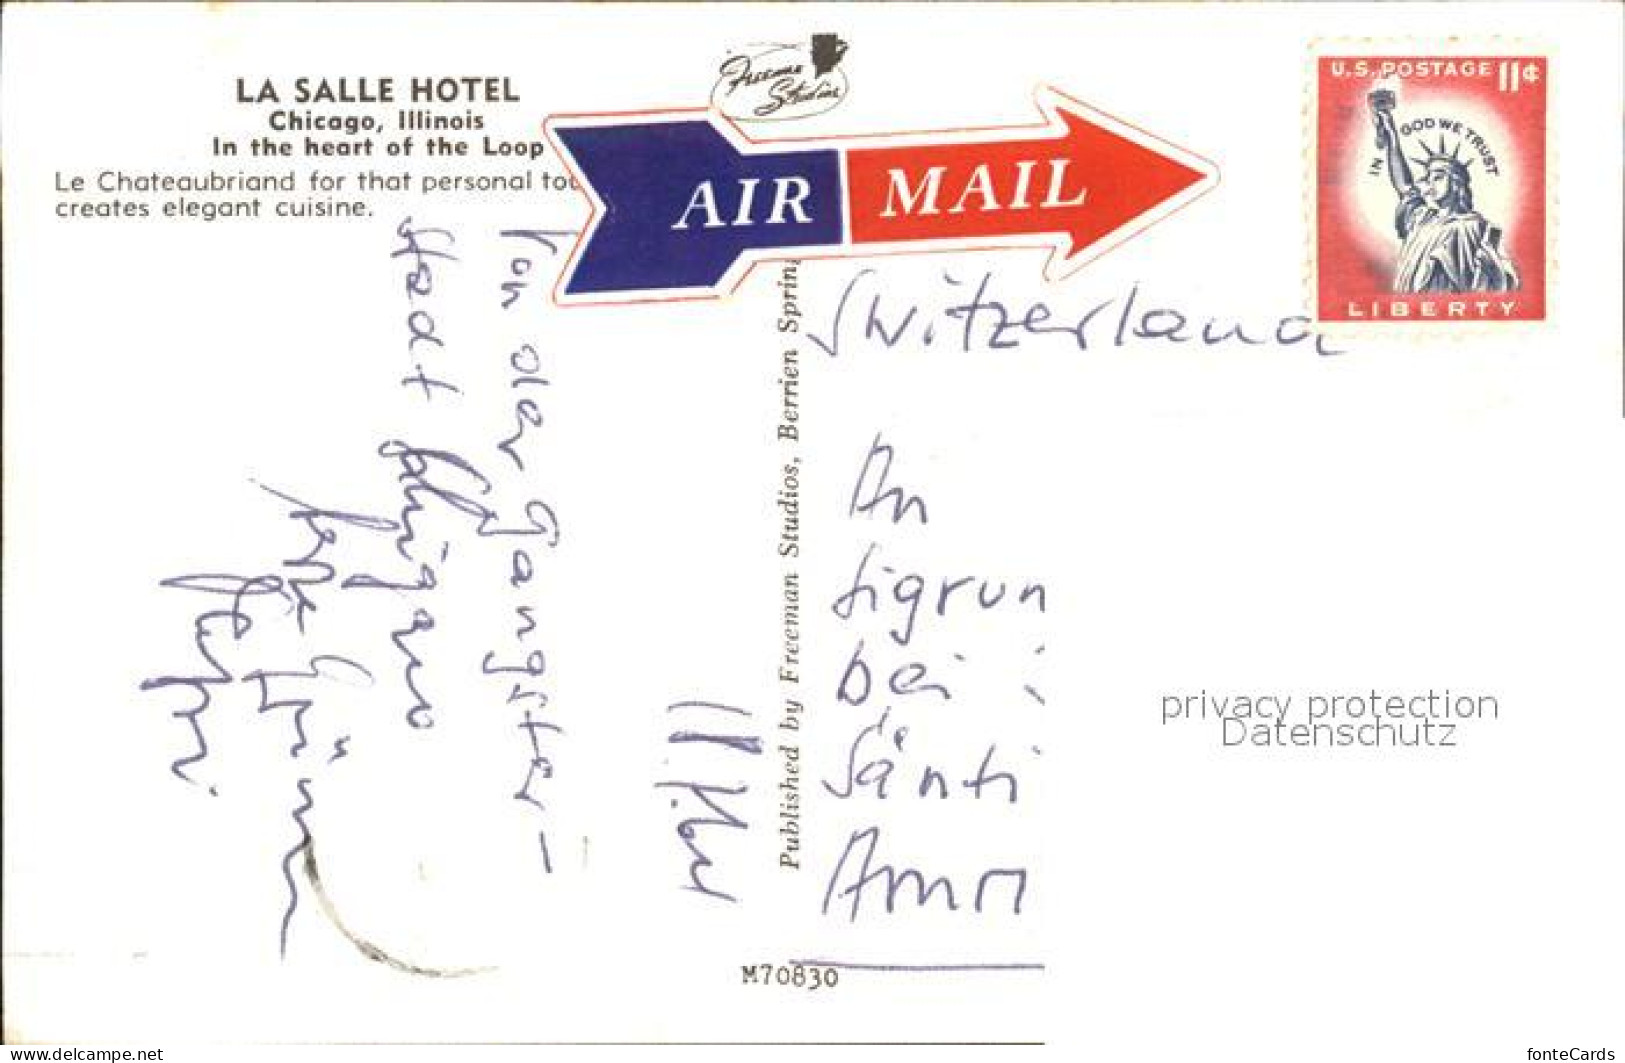 LA SALLE HOTEL
Chicago, Illinois
In the heart of the Loop
Le Chateaubriand for that personal tou
creates elegant cuisine.
Freeman
Studios
AIR MAIL
U.S. POSTAGE 11¢
IN GOD WE TRUST
LIBERTY
Von der Gangster-
stadt
Published by Freeman Studios, Berrien Spring
Switzerland
An
Sigrun
bei
Sänti
M70830
privacy protection
Datenschutz
www.delcampe.net
fonteCards